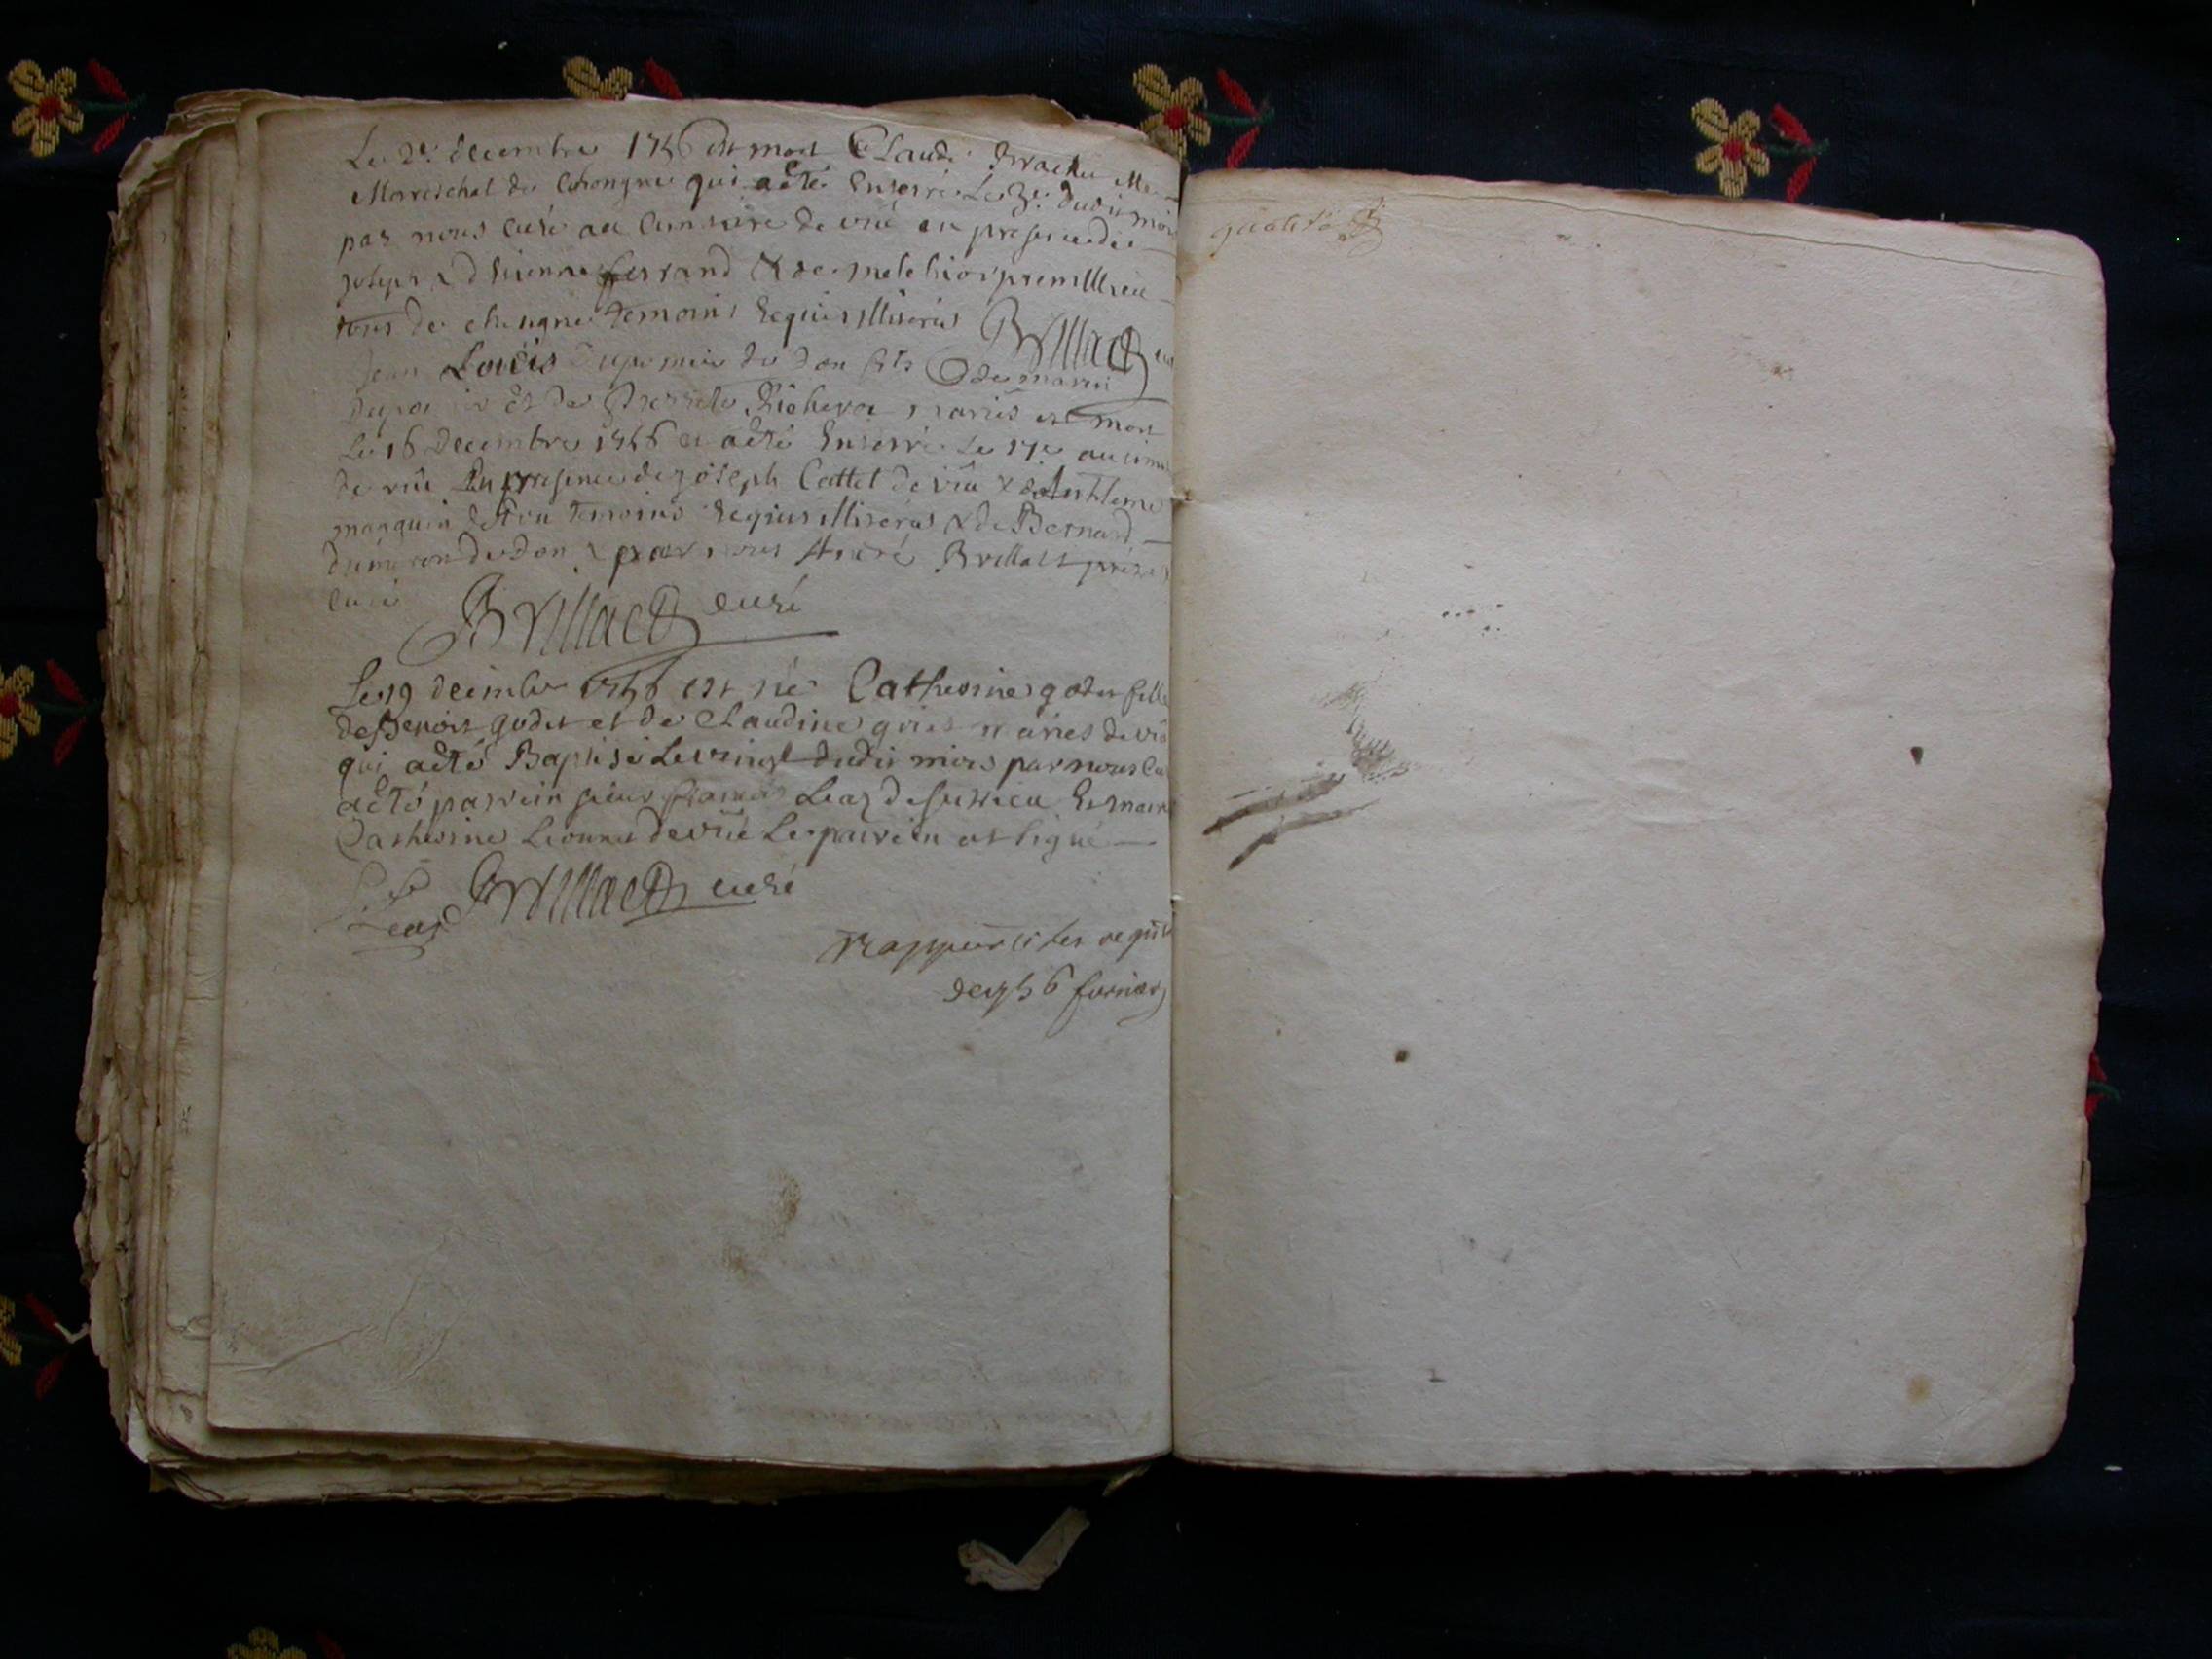 Le 2e. decembre 1756 est mort Claude
Mareschal de Chongne qui aété Enterré Le 3e. dudit mois
par nous curé au cimitiere de vriü en presence de
joseph & d'Etienne ferrand & de melchior premillieu
tous de chongne temoins Requis illiterés Brillact curé
jean Louis du don fils de marin
et de Pierrette mariés est mort
Le 16 decembre 1756 et aété Enterré Le 17e au cimi
de vriü En presence de joseph Cattet de vriü & de Anthleme
manquin temoins Requis illiterés & de Bernard
de don & par nous André Brillact prêtre
curé Brillact curé
Le 19 decembre 1756 est née Catherine godet fille
de Benoit godet et de Claudine mariés de vriü
qui aété Baptisé Le vingt dudit mois par nous cu
aété parrein sieur françois Leaz de Surrieu Et marr
Catherine de vriü Le parrein at signé
Leaz Brillact curé
Rapporté les regist
de 1756
qualité